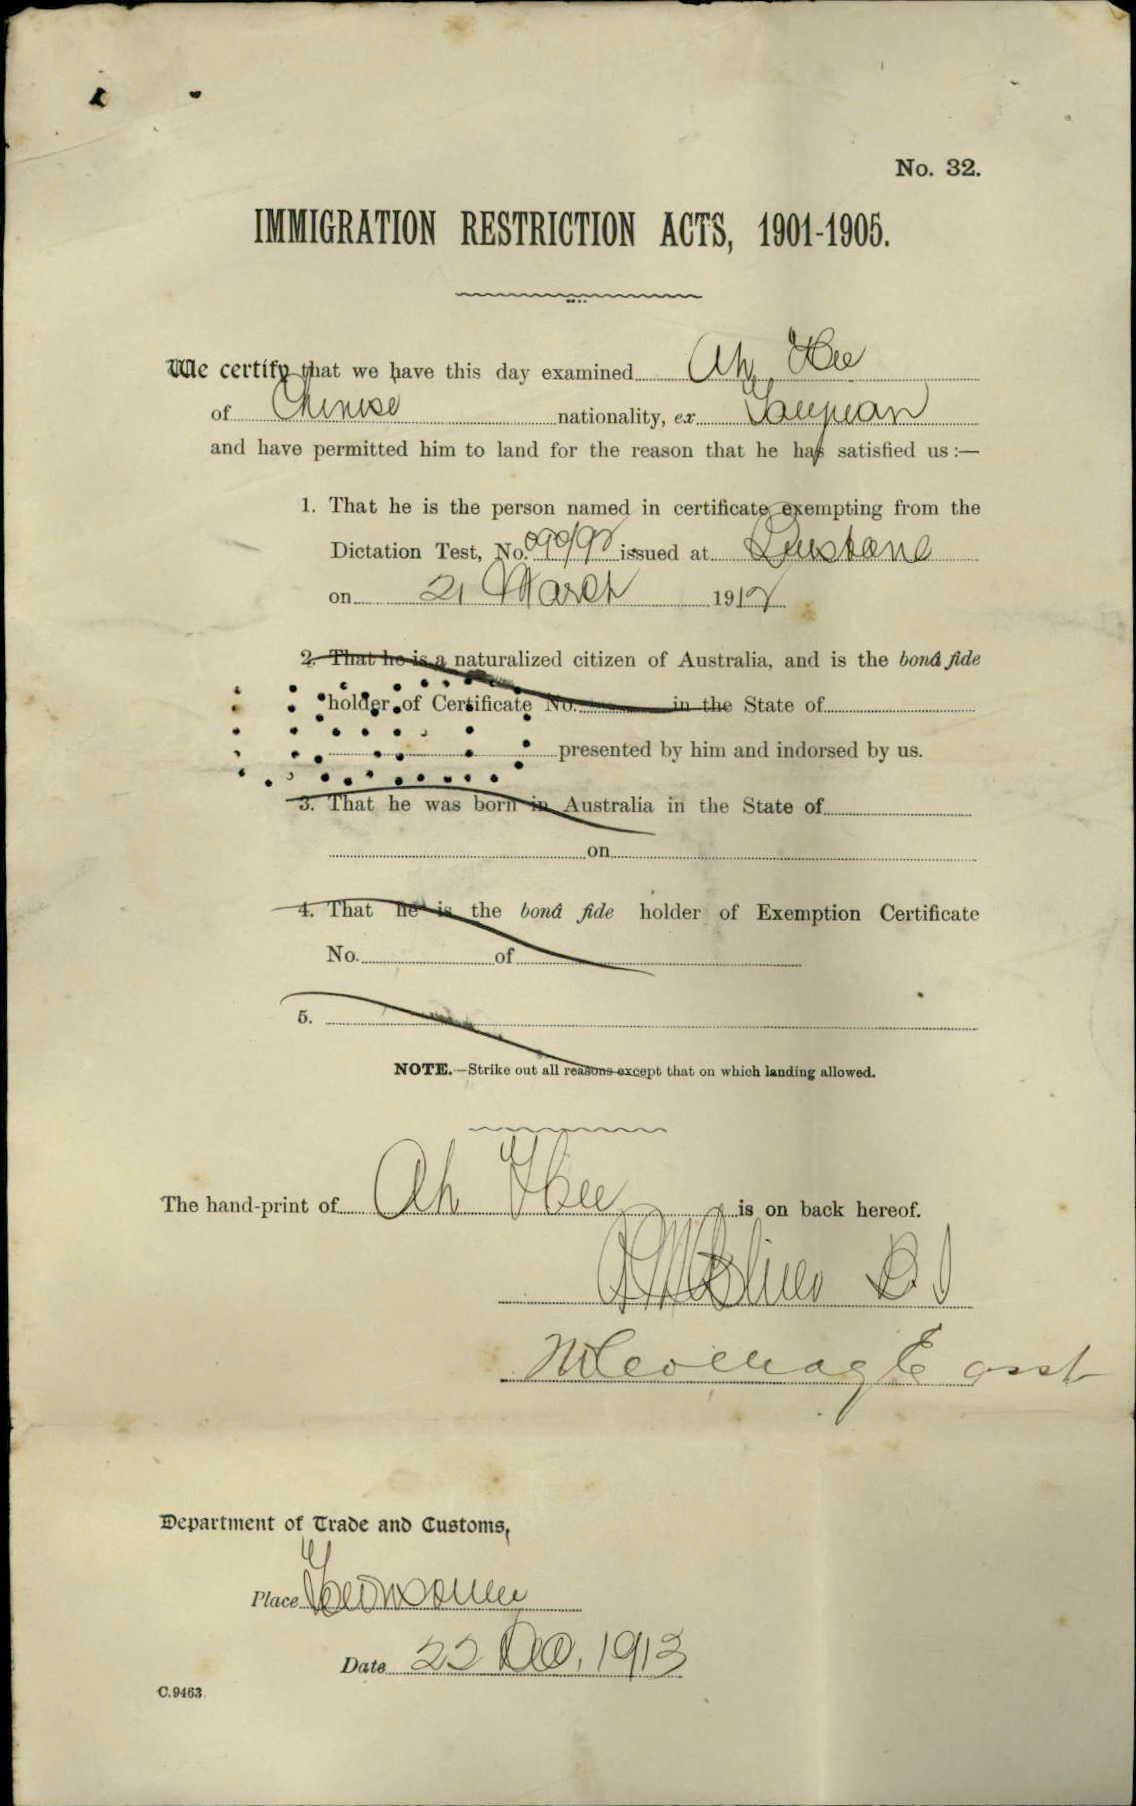 No. 32.
IMMIGRATION RESTRICTION ACTS, 1901-1905.
We certify that we have this day examined Ah Hee
of Chinese nationality, ex Taiyuan
and have permitted him to land for the reason that he has satisfied us :—
1. That he is the person named in certificate exempting from the
Dictation Test, No. issued at Brisbane
on 21 March 1912
2. That he is a naturalized citizen of Australia, and is the bonâ fide
holder of Certificate No. in the State of
presented by him and indorsed by us.
3. That he was born in Australia in the State of
on
4. That he is the bonâ fide holder of Exemption Certificate
No. of
5.
NOTE.—Strike out all reasons except that on which landing allowed.
The hand-print of Ah Hee is on back hereof.
asst
Department of Trade and Customs,
Place Townsville
Date 22 Dec. 1913
C.9463.